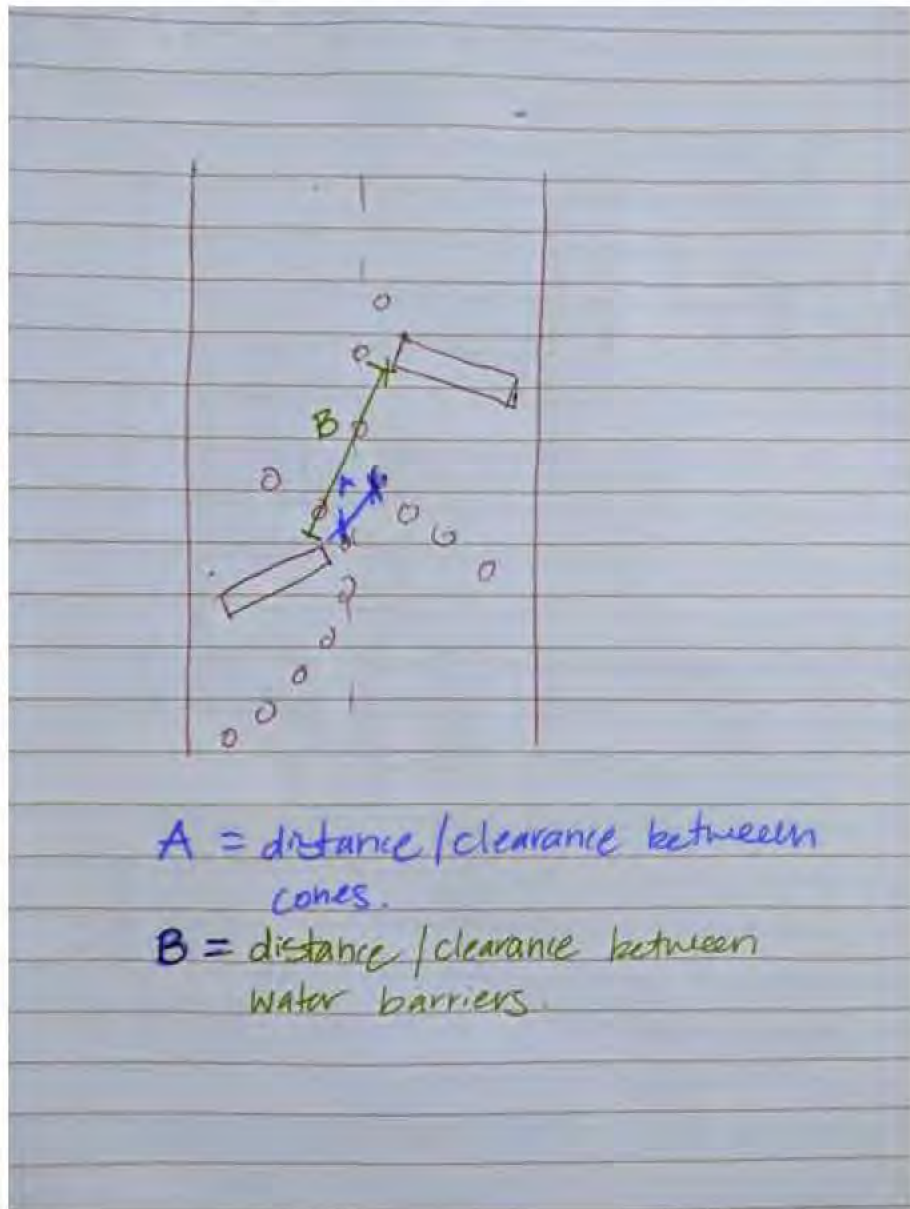 B
A
A = distance/clearance between
cones.
B = distance/clearance between
water barriers.